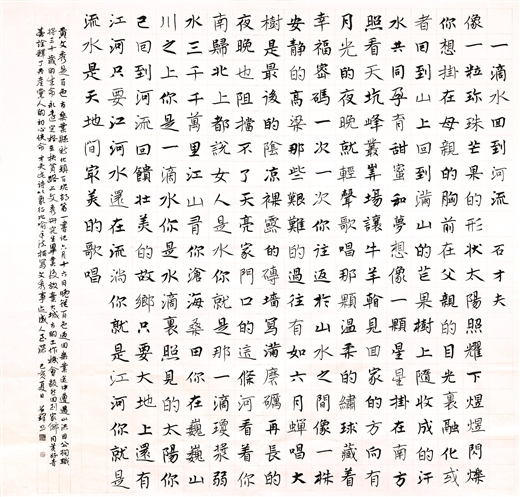 一滴水回到河流 石才夫
像一粒珍珠芒果的形状太陽照耀下熠熠閃爍
你想掛在母親的胸前在父親的目光裏融化或
者回到山上回到滿山的芒果樹上隨收成的汗
水共同孕育甜蜜和夢想像一顆星星掛在南方
照看天坑峰叢草場讓牛羊翰見回家的方向有
月光的夜晚就輕聲歌唱那顆温柔的繡球藏着
幸福密碼一次一次你往返於山水之間像一株
安靜的高粱那些艱難的過往有如六月蟬唱大
樹是最後的陰凉裸露的磚墻寫滿磨礪再長的
夜晚也阻擋不了天亮家門口的這條河看着你
南歸北上都說女人是水你是那一滴瓊漿弱
水三千千萬里江山看你滄海桑田你在巍巍山
川之上你是一滴水你是水滴裏照見的太陽你
已回到河流回饋壮美的故鄉只要大地上還有
江河只要江河水還在流淌你就是江河你就是
流水是天地間最美的歌唱
黄文秀是百色市樂業縣新化鎮百坭村第一書記六月十六日晚從百色返回樂業途中遭遇山洪因公殉職
将三十歲的生命永遠定格在扶貧路上文秀研究生畢業後放棄大城市的工作機會毅然回到家鄉用美好青
春詮釋了共產黨人的初心使命才夫
己亥夏日